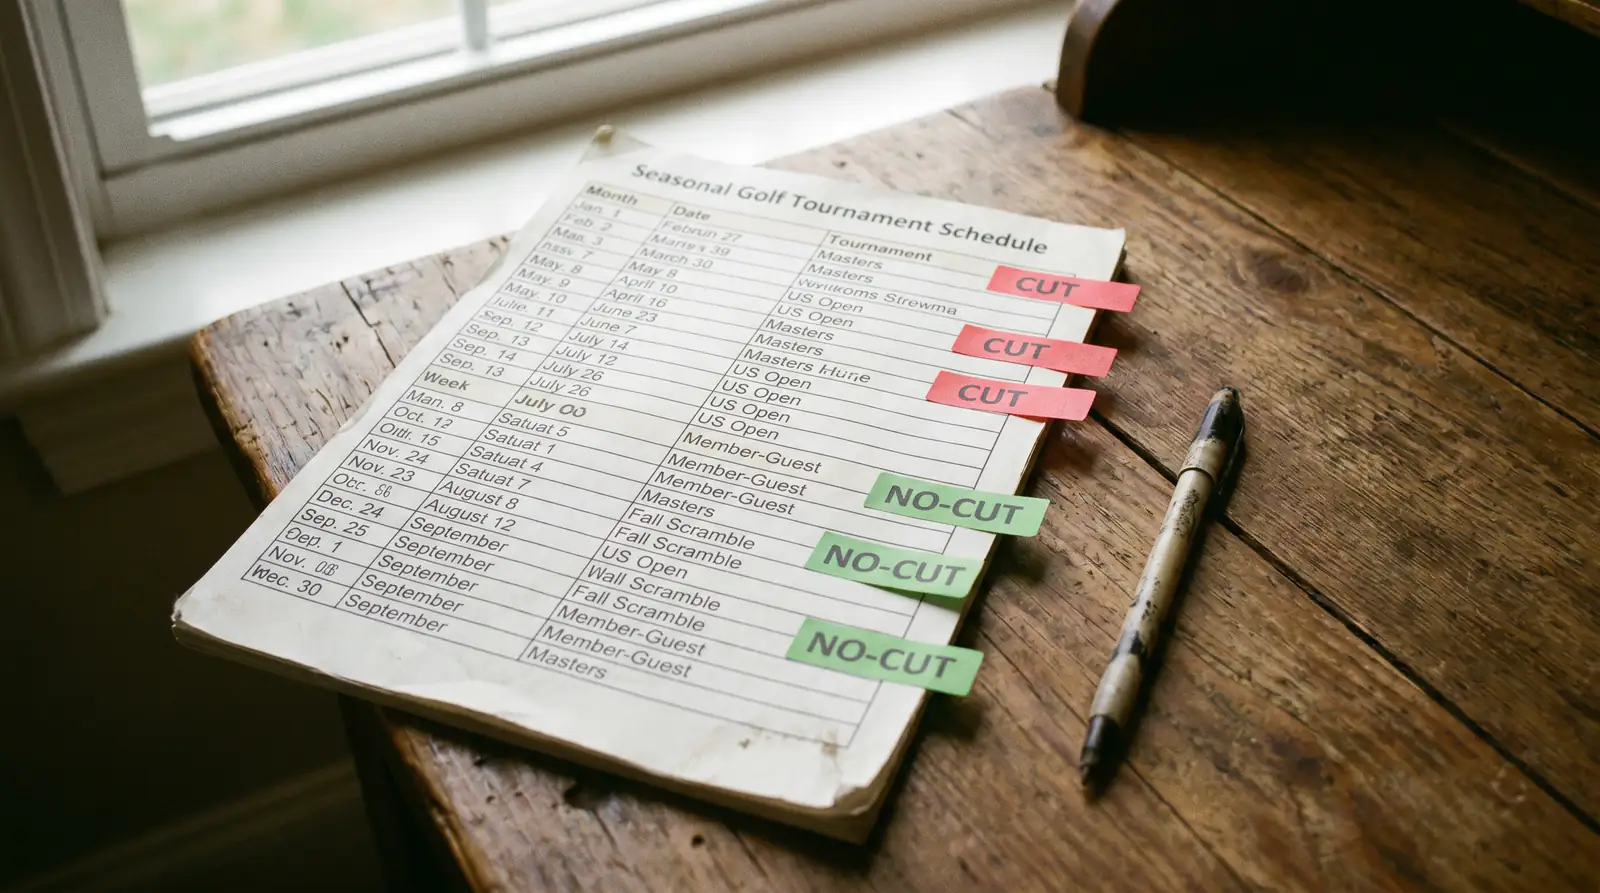 Seasonal Golf Tournament Schedule
Month
Jan. 1
Feb. 2
Mar. 3
7
May. 8
May. 9
May. 10
Julie. 11
Sep. 12
Sep. 13
Sep. 14
Sep. 13
Week
Man. 8
Oct. 12
15
Nov. 24
Nov. 23
Dec. 24
Sep. 25
Dep. 1
Nov.
Wec. 30
Date
Februn 27
39
March 30
May 8
April 10
April 16
June 23
June 7
July 14
July 12
July 26
July 26
July 00
Satuat 5
Satuat 1
Satuat 4
Satuat 7
August 8
August 12
September
September
September
September
September
Tournament
Masters
Masters
Strewma
US Open
US Open
Masters
Masters
Masters
US Open
US Open
US Open
Member-Guest
Member-Guest
Member-Guest
Masters
Fall Scramble
Fall Scramble
US Open
Wall Scramble
Fall Scramble
Member-Guest
Member-Guest
Masters
CUT
CUT
CUT
NO-CUT
NO-CUT
NO-CUT